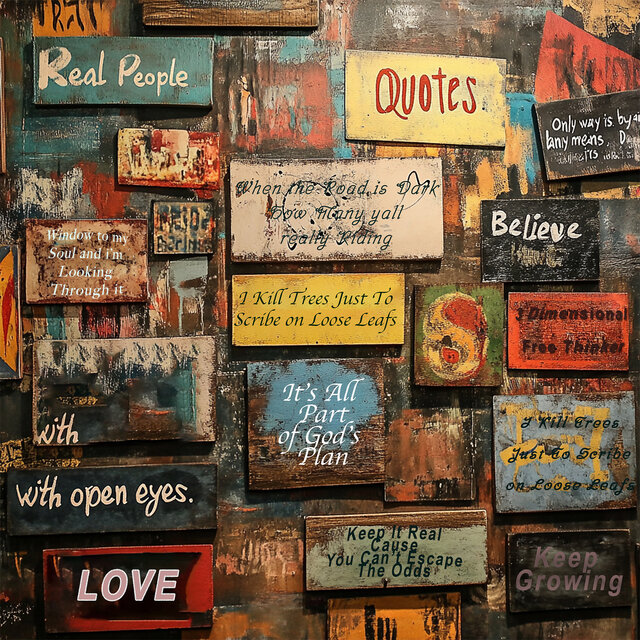 Real People
QUOTES
Only way is by ai
any means
When the Road is Dark
How many yall
really Riding
Believe
Window to my
Soul and i'm
Looking
Through it
I Kill Trees Just To
Scribe on Loose Leafs
3 Dimensional
Free Thinker
It's All
Part
of God's
Plan
with
I Kill Trees
Just to Scribe
on Loose Leafs
with open eyes.
Keep It Real
Cause
You Can't Escape
The Odds
LOVE
Keep
Growing